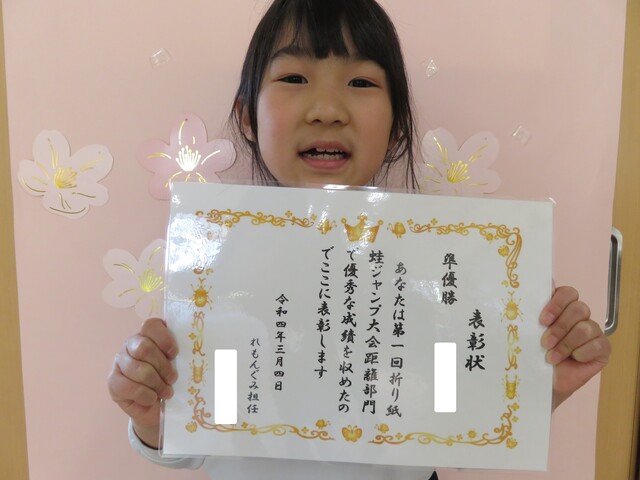 表彰状
準優勝
あなたは第一回折り紙
蛙ジャンプ大会距離部門
で優秀な成績を収めたの
でここに表彰します
令和四年三月四日
れもんぐみ担任